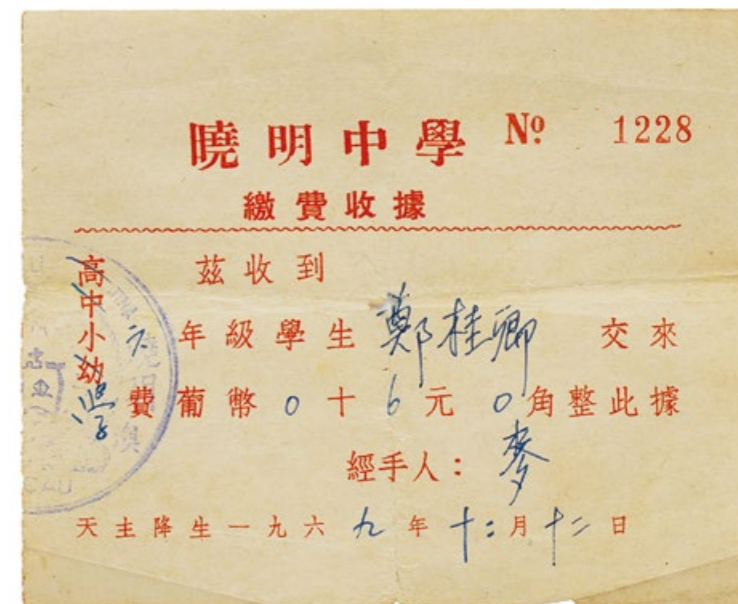 曉明中學 № 1228
繳費收據
高中小幼
茲收到
六年級學生鄭桂卿交來
學費葡幣0十6元0角整此據
經手人：麥
天主降生一九六九年十二月十二日